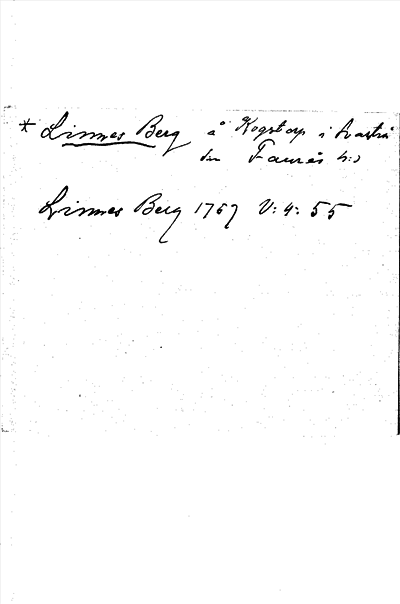 * Linnes Berg å Kogstorp i
Faurås h:d
Linnes Berg 1767 V: 4: 55